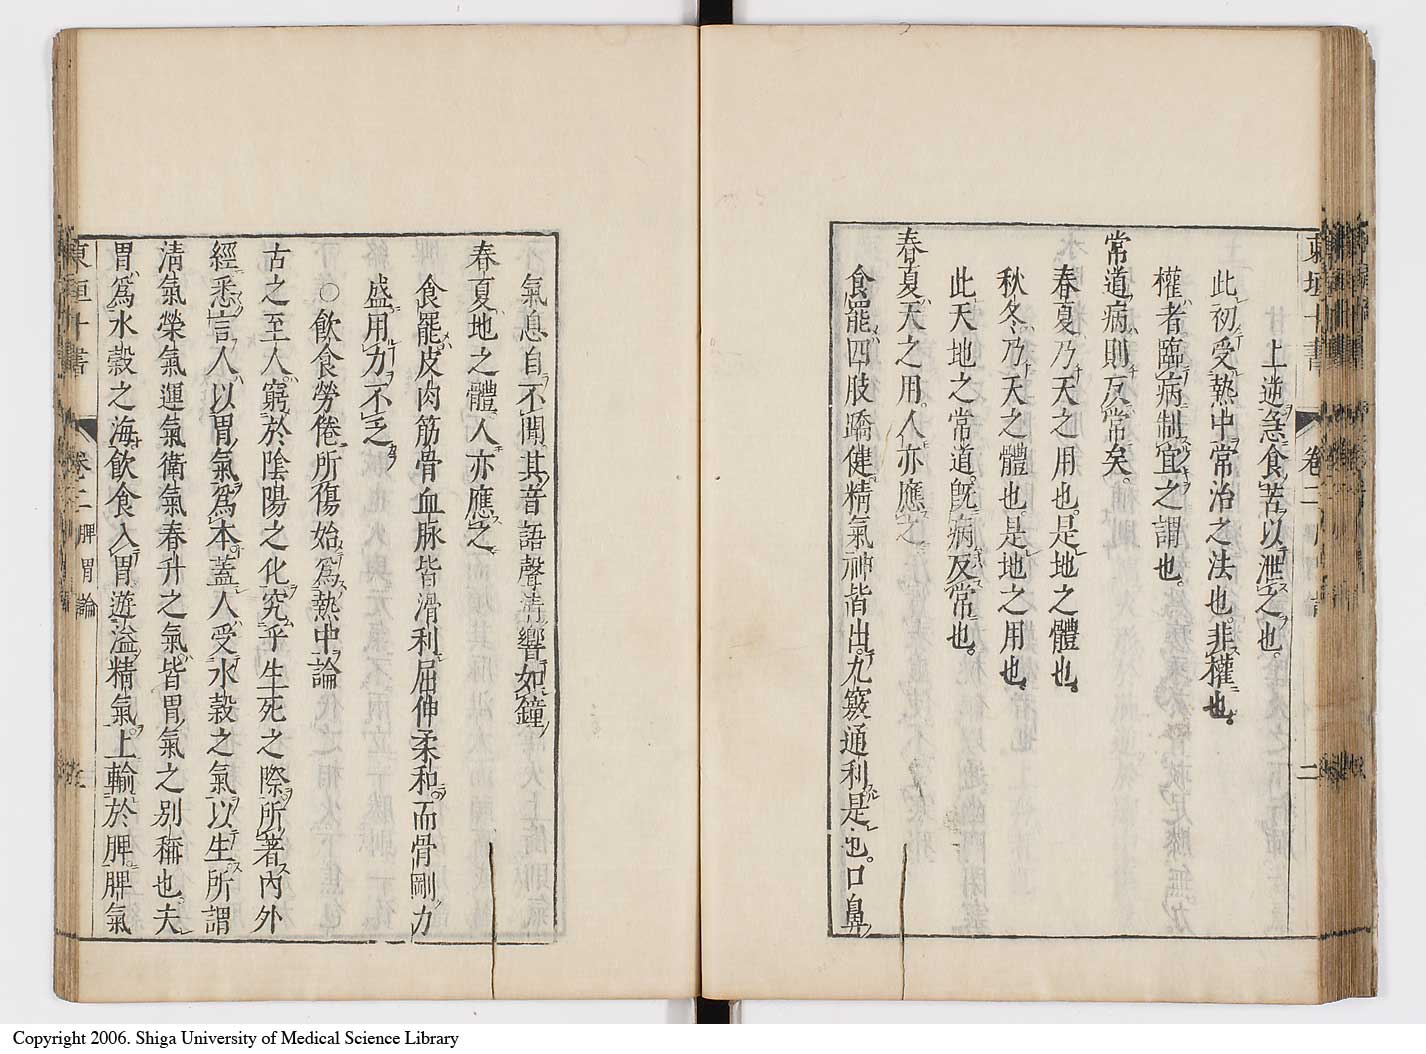 東垣十書 卷二 二
上逆急食苦以泄之也
此初受熱中常治之法也非權也
權者臨病制宜之謂也
常道病則反常矣
春夏乃天之用也是地之體也
秋冬乃天之體也是地之用也
此天地之常道既病反常也
春夏天之用人亦應之
食罷四肢矯健精氣神皆出九竅通利是也口鼻
氣息自不聞其音語聲清響如鐘
春夏地之體人亦應之
食罷皮肉筋骨血脉皆滑利屈伸柔和而骨剛力
盛用力不乏
○飲食勞倦所傷始爲熱中論
古之至人窮於陰陽之化究乎生死之際所著內外
經悉言人以胃氣爲本蓋人受水穀之氣以生所謂
淸氣榮氣運氣衛氣春升之氣皆胃氣之別稱也夫
胃爲水穀之海飲食入胃遊溢精氣上輸於脾脾氣
東垣十書 卷二 脾胃論
Copyright 2006. Shiga University of Medical Science Library